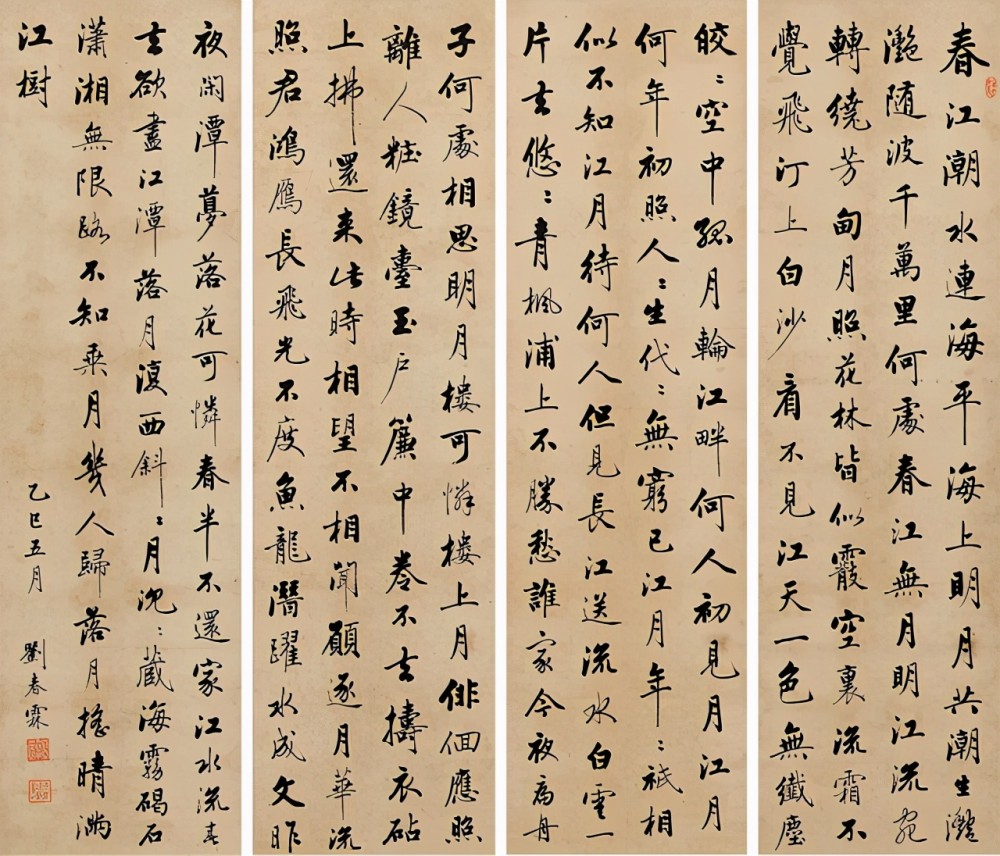 春江潮水連海平海上明月共潮生灩
灧随波千萬里何處春江無月明江流宛
轉繞芳甸月照花林皆似霰空裏流霜不
覺飛汀上白沙看不見江天一色無纖塵
皎〻空中孤月輪江畔何人初見月江月
何年初照人〻生代〻無窮已江月年〻祇相
似不知江月待何人但見長江送流水白雲一
片去悠〻青楓浦上不勝愁誰家今夜扁舟
子何處相思明月樓可憐樓上月俳佪應照
離人粧鏡臺玉戶簾中卷不去擣衣砧
上拂還来此時相望不相聞願逐月華流
照君鴻鴈長飛光不度魚龍潛躍水成文昨
夜閑潭夢落花可憐春半不還家江水流春
去欲盡江潭落月復西斜〻月沈〻藏海霧碣石
瀟湘無限路不知乘月幾人歸落月搖晴满
江樹
乙巳五月 劉春霖